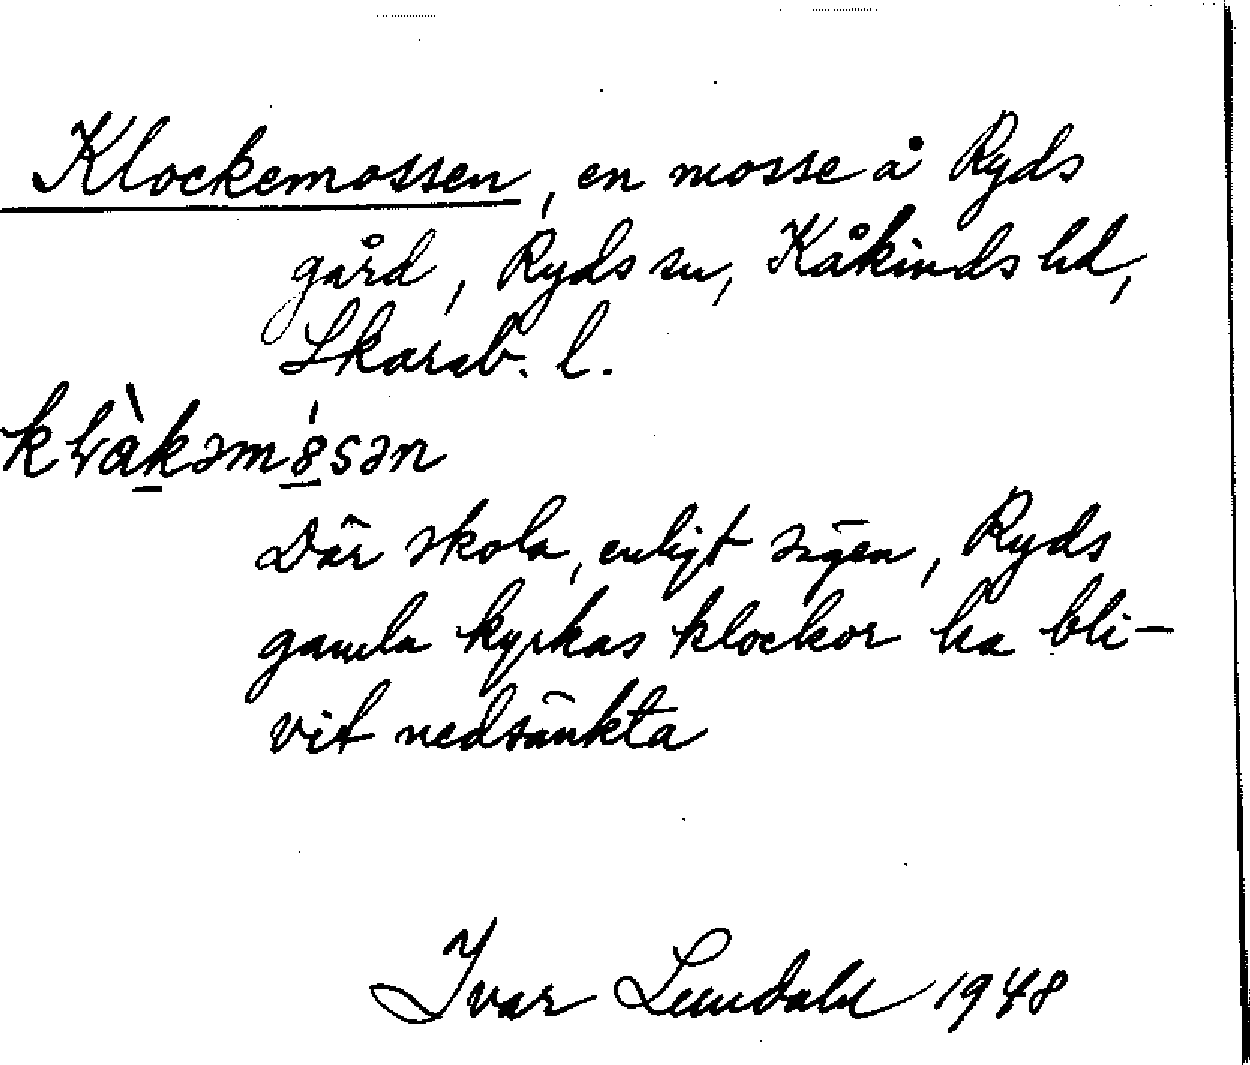 Klockemossen, en mosse å Ryds
gård, Ryds sn, Kåkinds hd,
Skarab. l.
klàkəmȯsən
Där skola, enligt sägen, Ryds
gamla kyrkas klockor ha bli-
vit nedsänkta
Ivar Lundahl 1948